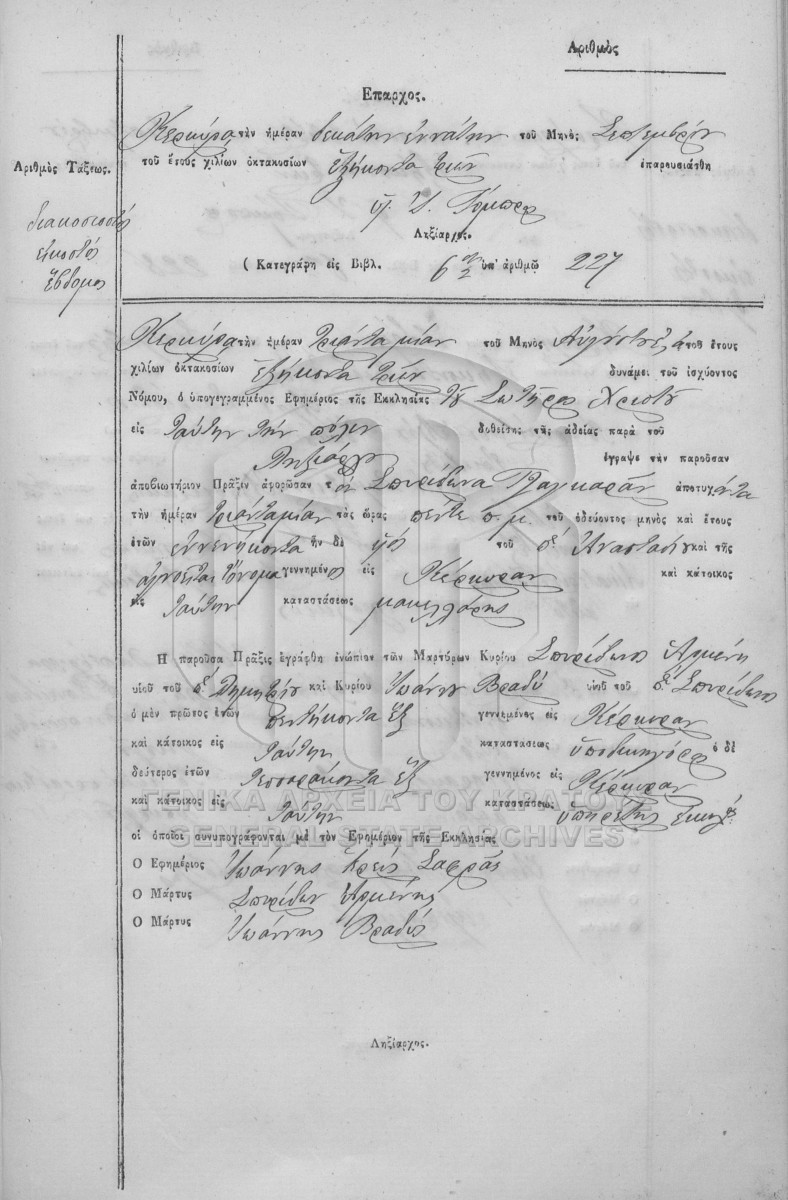 Αριθμὸς
Επαρχος.
Κερκύρα τὴν ἡμέραν δεκάτην ἐννάτην τοῦ Μηνὸς Σεπτεμβρίου
Αριθμὸς Τάξεως.
τοῦ ἔτους χιλίων ὀκτακοσίων ἑξήκοντα τριῶν ἐπαρουσιάσθη
διακοσιοστὸς
εἰκοστὸς
ἕβδομος
Ληξίαρχος.
( Κατεγράφη εἰς Βιβλ. 6 ὑπ' ἀριθμῷ 227
Κερκύρα τὴν ἡμέραν τριάντα μίαν τοῦ Μηνὸς Αὐγούστου τοῦ ἔτους
χιλίων ὀκτακοσίων ἑξήκοντα τριῶν δυνάμει τοῦ ἰσχύοντος
Νόμου, ὁ ὑπογεγραμμένος Ἐφημέριος τῆς Εκκλησίας τοῦ Σωτῆρος Χριστοῦ
εἰς ταύτην τὴν πόλιν δοθείσης τῆς ἀδείας παρὰ τοῦ
Ληξιάρχου ἔγραψε τὴν παροῦσαν
ἀποβιωτήριον Πρᾶξιν ἀφορῶσαν τὸν Σπυρίδωνα ἀποτυχόντα
τὴν ἡμέραν τριάντα μίαν τὰς ὥρας πέντε π. μ. τοῦ ὁδεύοντος μηνὸς καὶ ἔτους
ἐτῶν ἐννενήκοντα ἦν δὲ υἱὸς τοῦ π. Ἀναστασίου καὶ τῆς
ἀγνοεῖται τὄνομα γεννημένος εἰς Κέρκυραν καὶ κάτοικος
εἰς ταύτην καταστάσεως μακελλάρης
Ἡ παροῦσα Πρᾶξις ἐγράφθη ἐνώπιον τῶν Μαρτύρων Κυρίου Σπυρίδωνος Ἀρμένη
υἱοῦ τοῦ π. Δημητρίου καὶ Κυρίου Ἰωάννου Βραδῆ υἱοῦ τοῦ π. Σπυρίδωνος
ὁ μὲν πρῶτος ἐτῶν πεντήκοντα ἓξ γεννημένος εἰς Κέρκυραν
καὶ κάτοικος εἰς ταύτην καταστάσεως ὑποδικηγόρος ὁ δὲ
δεύτερος ἐτῶν τεσσαράκοντα ἓξ γεννημένος εἰς Κέρκυραν
καὶ κάτοικος εἰς ταύτην καταστάσεως ὑπηρέτης
ΓΕΝΙΚΑ ΑΡΧΕΙΑ ΤΟΥ ΚΡΑΤΟΥΣ
GENERAL STATE ARCHIVES
οἱ ὁποῖοι συνυπογράφονται μὲ τὸν Εφημέριον τῆς Εκκλησίας
Ο Εφημέριος Ἰωάννης Ἱερεὺς
Ο Μάρτυς Σπυρίδων Ἀρμένης
Ο Μάρτυς Ἰωάννης Βραδῆς
Ληξίαρχος.